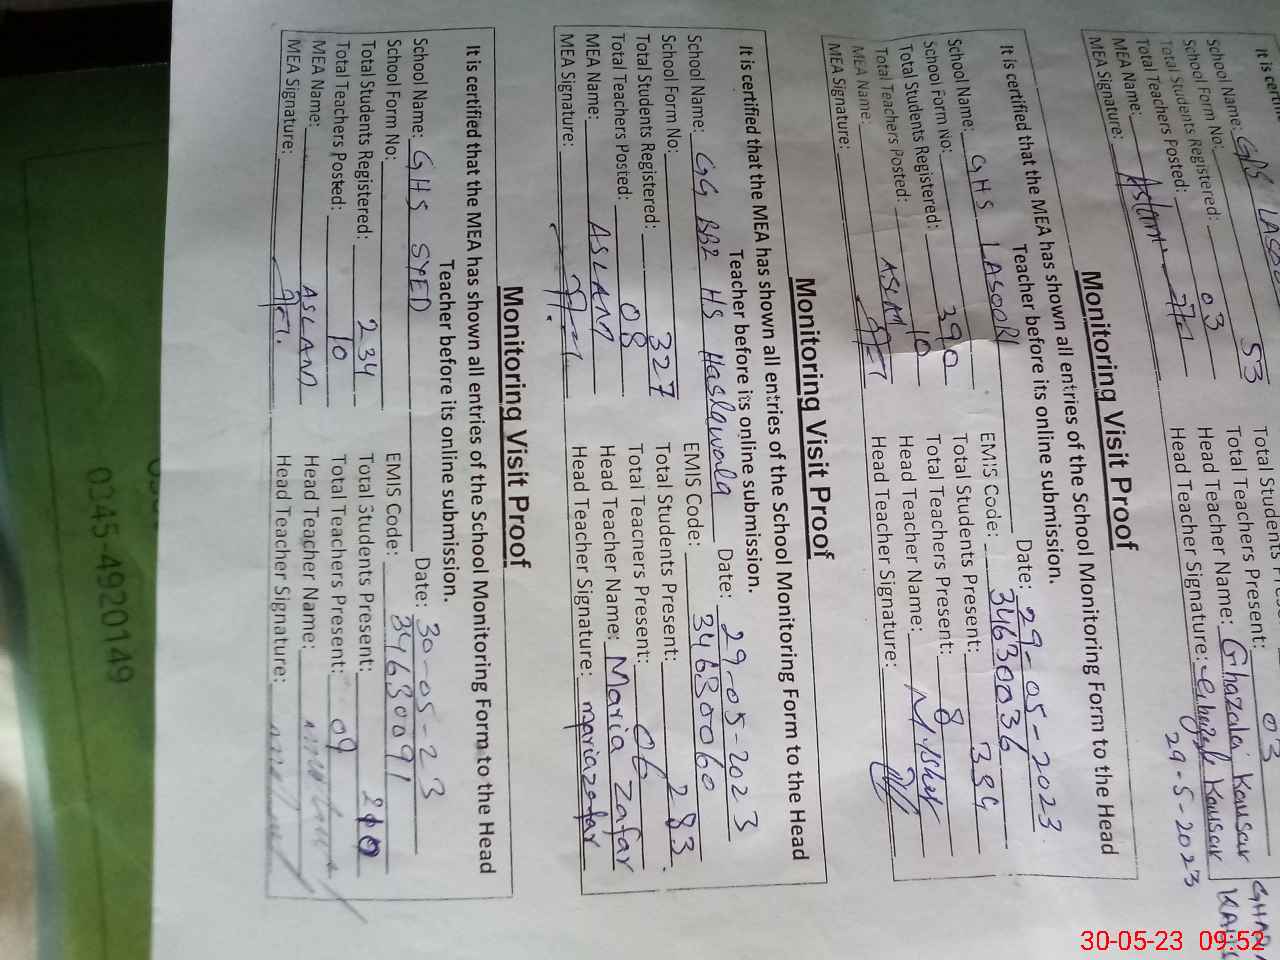 It is certi
School Name: GPS LASO
School Form No:
Total Students Registered: 53
Total Students Pres
Total Teachers Posted: 03
Total Teachers Present: 03
MEA Name: Aslam
Head Teacher Name: Ghazala Kausar
MEA Signature:
Head Teacher Signature: Ghazala Kausar
29-5-2023
Monitoring Visit Proof
It is certified that the MEA has shown all entries of the School Monitoring Form to the Head
Teacher before its online submission.
School Name: GHS LASOORI Date: 29-05-2023
School Form No: EMIS Code: 34630036
Total Students Registered: 390 Total Students Present: 334
Total Teachers Posted: 10 Total Teachers Present: 8
MEA Name: ASLAM Head Teacher Name:
MEA Signature: Head Teacher Signature:
Monitoring Visit Proof
It is certified that the MEA has shown all entries of the School Monitoring Form to the Head
Teacher before its online submission.
School Name: GG HS Haslawala Date: 29-05-2023
School Form No: EMIS Code: 34630060
Total Students Registered: 327 Total Students Present: 283
Total Teachers Posted: 08 Total Teachers Present: 06
MEA Name: ASLAM Head Teacher Name: Maria Zafar
MEA Signature: Head Teacher Signature: mariazafar
Monitoring Visit Proof
It is certified that the MEA has shown all entries of the School Monitoring Form to the Head
Teacher before its online submission.
School Name: GHS SYED Date: 30-05-23
School Form No: EMIS Code: 34630091
Total Students Registered: 234 Total Students Present: 210
Total Teachers Posted: 10 Total Teachers Present: 09
MEA Name: ASLAM Head Teacher Name:
MEA Signature: Head Teacher Signature:
0345-4920149
30-05-23 09:52